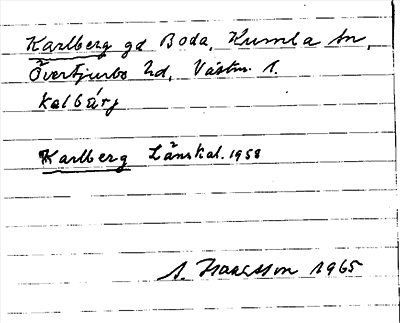 Karlberg gd Boda, Kumla sn,
Övertjurbo hd, Västm. l.
kalbärj
Karlberg Länskal. 1958
A. Isaksson 1965